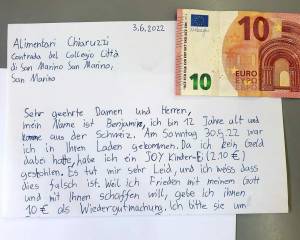 3.6.2022
Alimentari Chiaruzzi
Contrada del Collegio Città
di San Marino San Marino,
San Marino
10
10
EURO
Sehr geehrte Damen und Herren,
mein Name ist Benjamin, ich bin 12 Jahre alt und
komme aus der Schweiz. Am Sonntag 30.5.22 war
ich in Ihren Laden gekommen. Da ich kein Geld
dabei hatte, habe ich ein JOY Kinder-Ei (2.10 €)
gestohlen. Es tut mir sehr Leid, und ich weiss dass
dies falsch ist. Weil ich Frieden mit meinem Gott
und mit Ihnen schaffen will, gebe ich ihnen
10 € als Wiedergutmachung. Ich bitte sie um